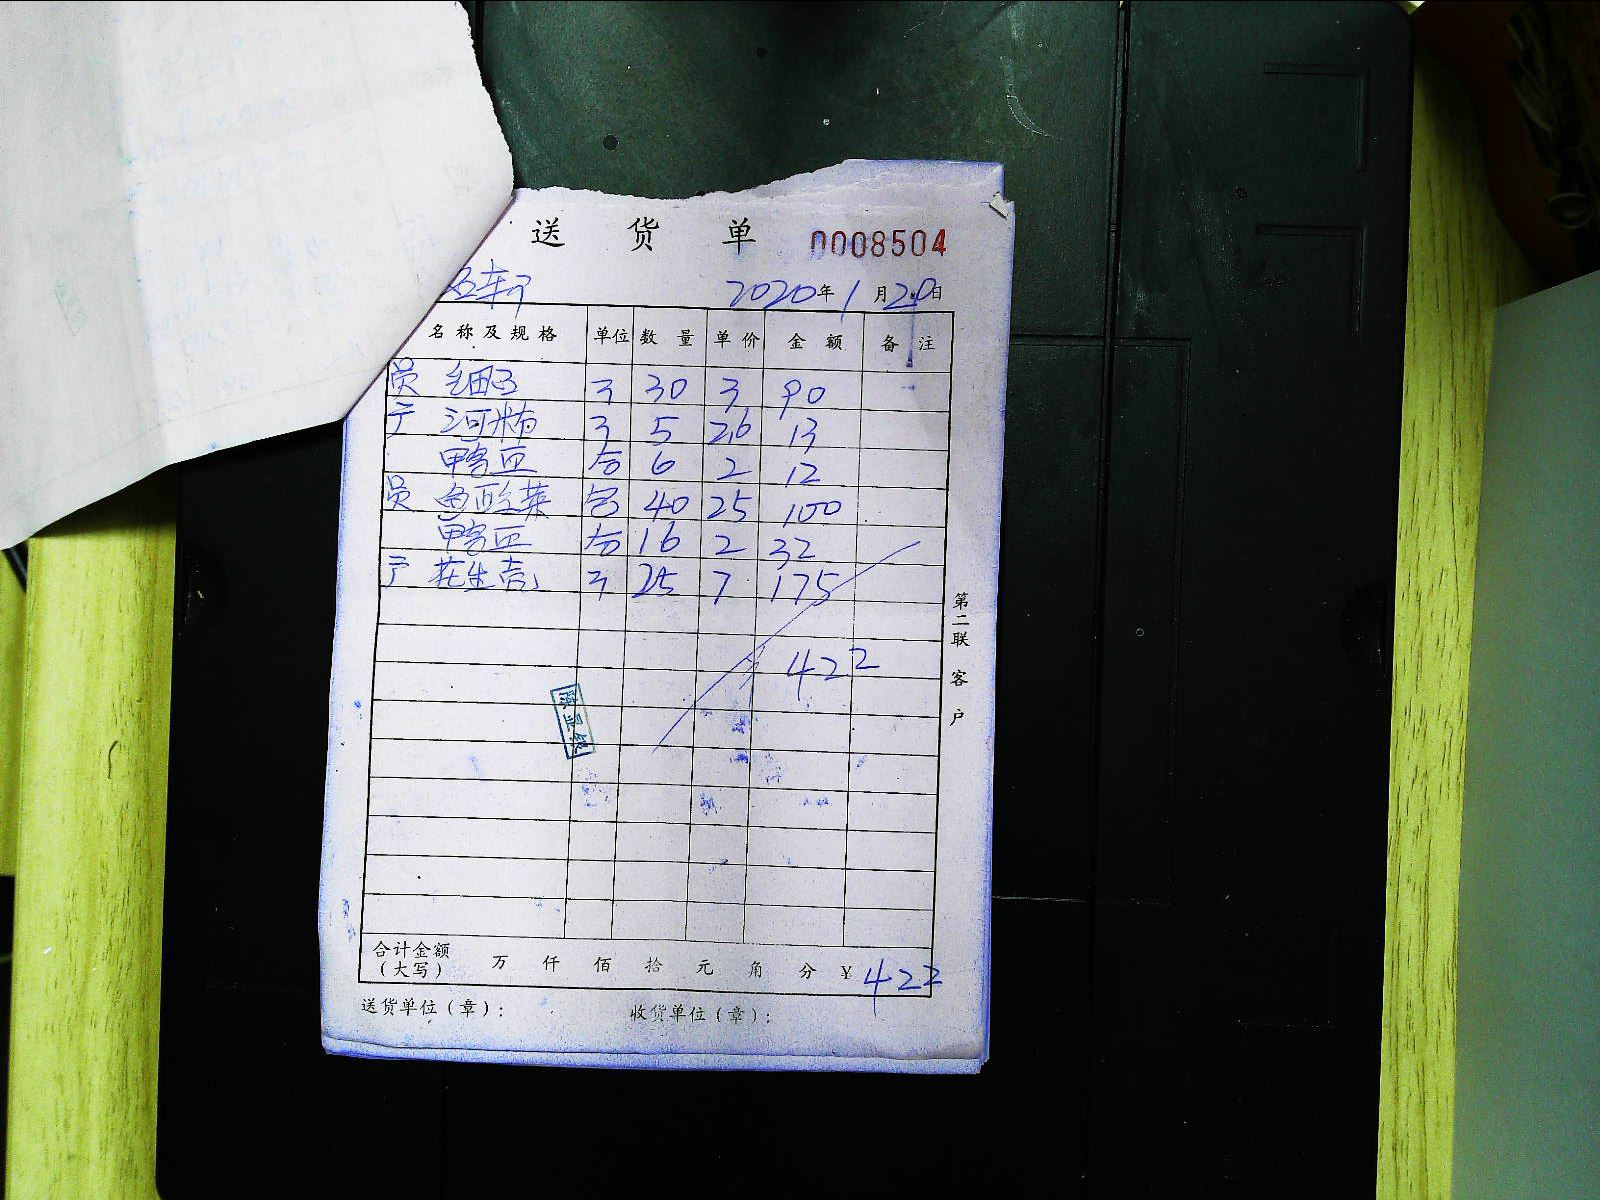 送货单 0008504
2020年1月20日
名称及规格 单位 数量 单价 金额 备注
员 细 30 3 90
于 河粉 5 2.6 13
鸭血 合 6 2 12
员 鱼酸菜 包 40 25 100
鸭血 合 16 2 32
于 花生 25 7 175
422
第二联 客户
合计金额
(大写) 万 仟 佰 拾 元 角 分 ¥422
送货单位(章): 收货单位(章):